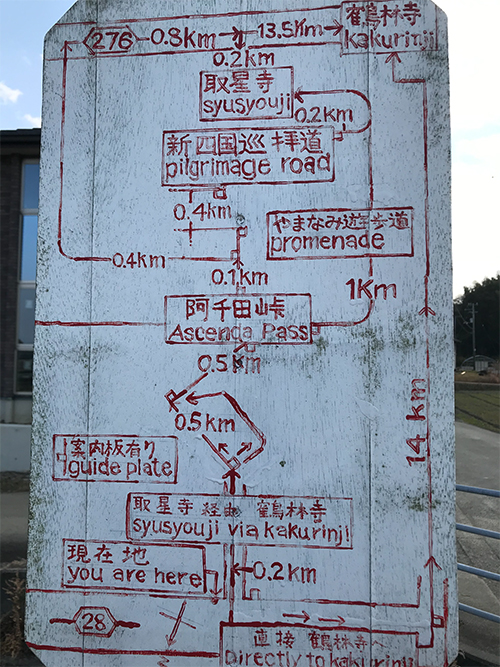 276
0.8Km
13.5Km
鶴林寺
kakurinji
0.2km
取星寺
syusyouji
0.2km
新四国巡拝道
pilgrimage road
0.4Km
やまなみ遊歩道
promenade
0.4km
0.1km
1Km
阿千田峠
Ascenda Pass
0.5Km
0.5km
14 km
案内板有り
guide plate
取星寺 経由 鶴林寺
syusyouji via kakurinji
現在地
you are here
0.2km
28
直接 鶴林寺へ
Directly to kakurinji